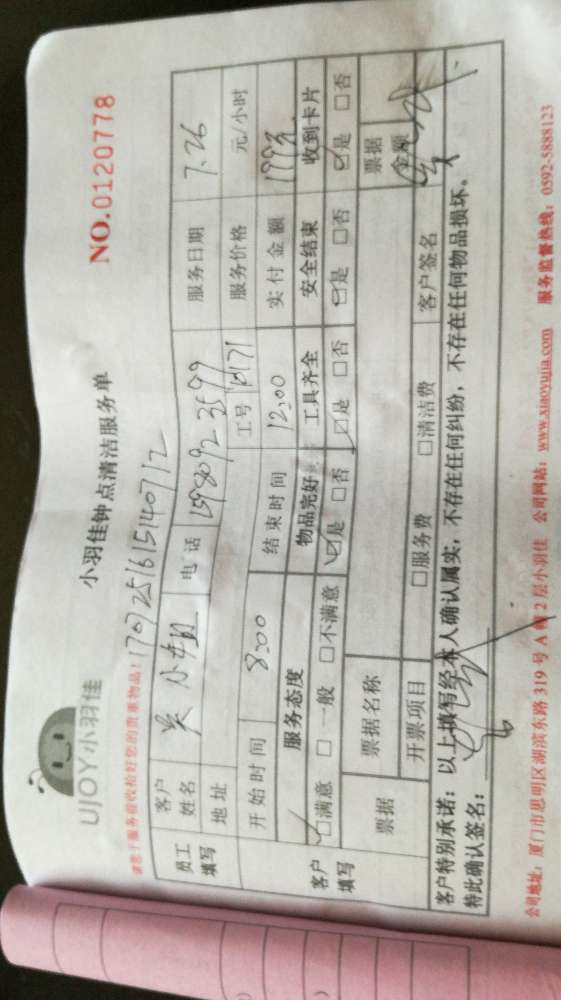 UJOY小羽佳
小羽佳钟点清洁服务单
NO.0120778
请您于服务前收拾好您的贵重物品！
170725161514071 2
员工填写
客户姓名
吴小姐
电话
服务日期
7.26
地址
工号
10171
服务价格
元/小时
开始时间
8:00
结束时间
12:00
实付金额
客户填写
服务态度
物品完好
工具齐全
安全结束
收到卡片
☑满意 □一般 □不满意
☑是 □否
☑是 □否
☑是 □否
☑是 □否
票据
票据名称
票据金额
开票项目
□服务费 □清洁费
客户签名
客户特别承诺：以上填写经本人确认属实，不存在任何纠纷，不存在任何物品损坏。
特此确认签名：
公司地址：厦门市思明区湖滨东路 319 号 A 幢 2 层小羽佳 公司网站：www.xiaoyujia.com 服务监督热线：0592-5888123